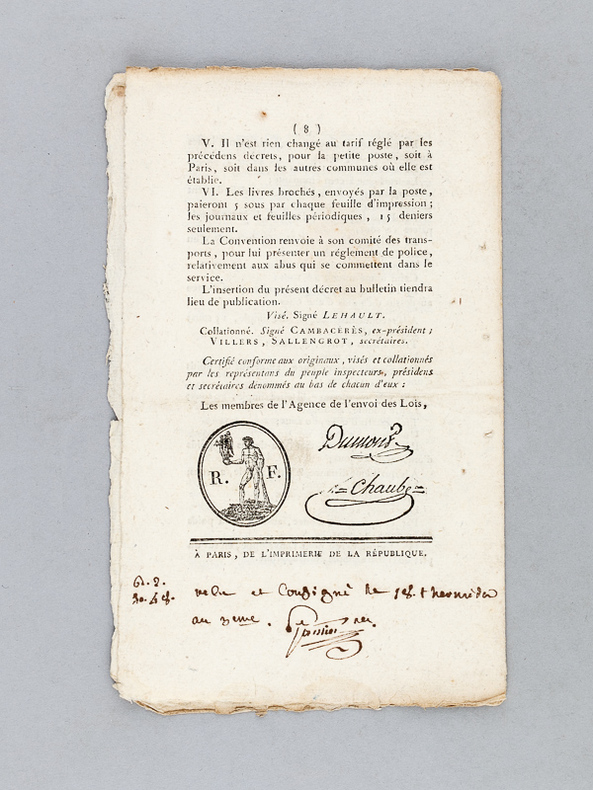 ( 8 )
V. Il n'est rien changé au tarif réglé par les
précédens décrets, pour la petite poste, soit à
Paris, soit dans les autres communes où elle est
établie.
VI. Les livres brochés, envoyés par la poste,
paieront 5 sous par chaque feuille d'impression ;
les journaux et feuilles périodiques, 15 deniers
seulement.
La Convention renvoie à son comité des trans-
ports, pour lui présenter un réglement de police,
relativement aux abus qui se commettent dans le
service.
L'insertion du présent décret au bulletin tiendra
lieu de publication.
Visé. Signé LEHAULT.
Collationné. Signé CAMBACÉRÈS, ex-président ;
VILLERS, SALLENGROT, secrétaires.
Certifié conforme aux originaux, visés et collationnés
par les représentans du peuple inspecteurs, présidens
et secrétaires dénommés au bas de chacun d'eux :
Les membres de l'Agence de l'envoi des Lois,
R. F.
Dumont
Chaube
À PARIS, DE L'IMPRIMERIE DE LA RÉPUBLIQUE.
et Consigné le 18. thermidor
au 3eme.